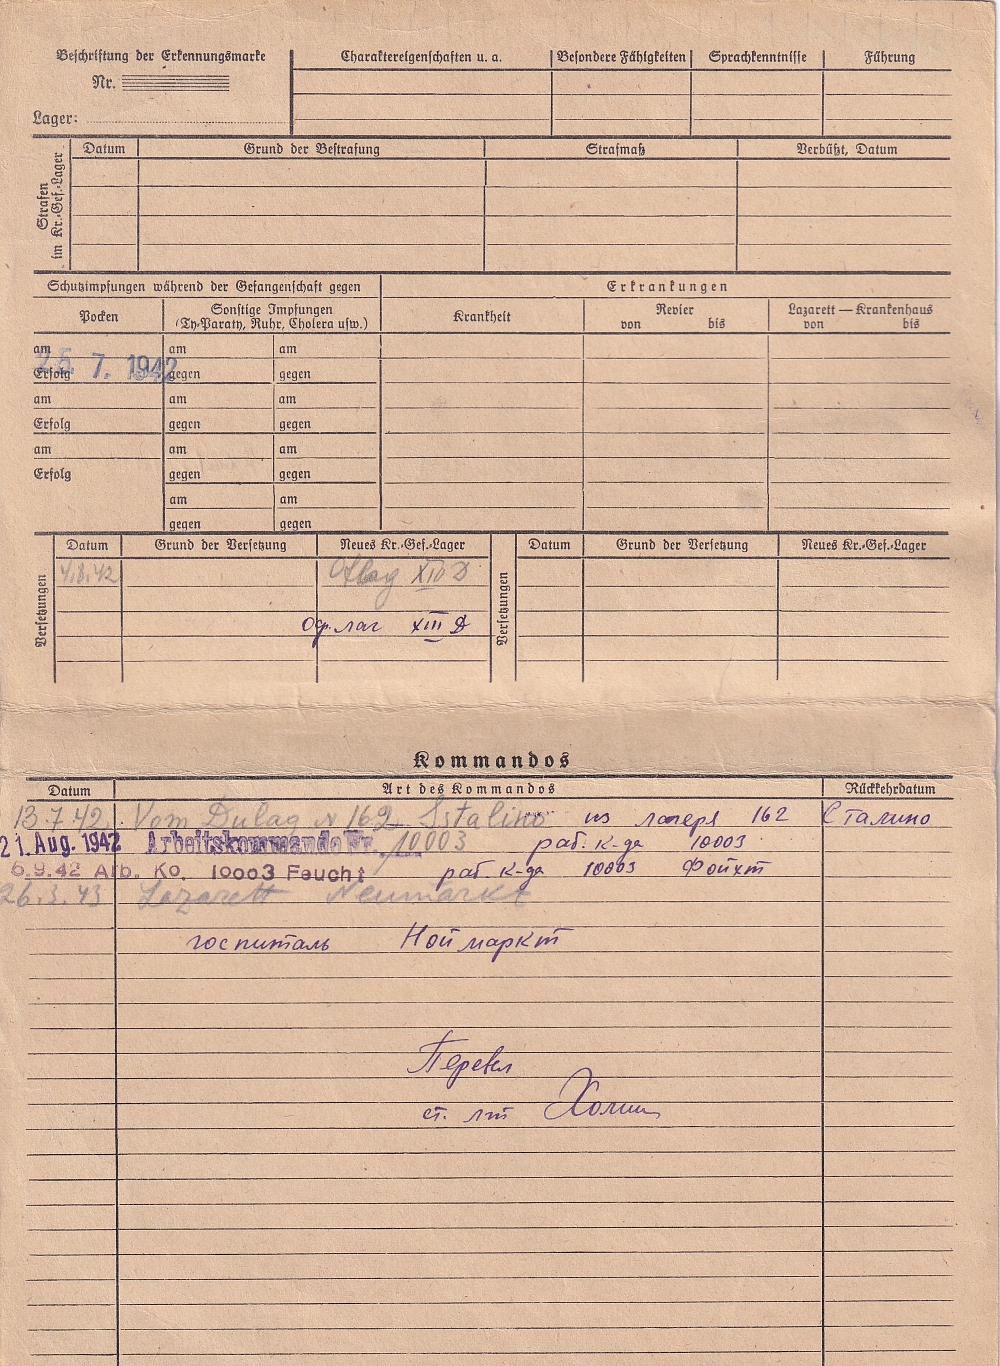 Beschriftung der Erkennungsmarke
Nr.
Lager:
Charaktereigenschaften u. a.
Besondere Fähigkeiten
Sprachkenntnisse
Führung
Strafen im Kr.-Gef.-Lager
Datum
Grund der Bestrafung
Strafmaß
Verbüßt, Datum
Schutzimpfungen während der Gefangenschaft gegen
Erkrankungen
Pocken
Sonstige Impfungen
(Ty-Paraty, Ruhr, Cholera usw.)
Krankheit
Revier
von bis
Lazarett — Krankenhaus
von bis
am am am
25. 7. 1942
Erfolg gegen gegen
am am am
Erfolg gegen gegen
am am am
Erfolg gegen gegen
am am
gegen gegen
Versetzungen
Datum Grund der Versetzung Neues Kr.-Gef.-Lager
4.8.42 Oflag XIII D
Оф.лаг XIII Д
Versetzungen
Datum Grund der Versetzung Neues Kr.-Gef.-Lager
Kommandos
Datum Art des Kommandos Rückkehrdatum
13.7.42. Vom Dulag N 162 Sstalino из лагеря 162 Сталино
21. Aug. 1942 Arbeitskommando Nr. 10003 раб. к-да 10003
6.9.42 Arb. Ko. 10003 Feucht раб. к-да 10003 Фойхт
26.3.43 Lazarett Neumarkt
госпиталь Ноймаркт
Перевел
ст. лт